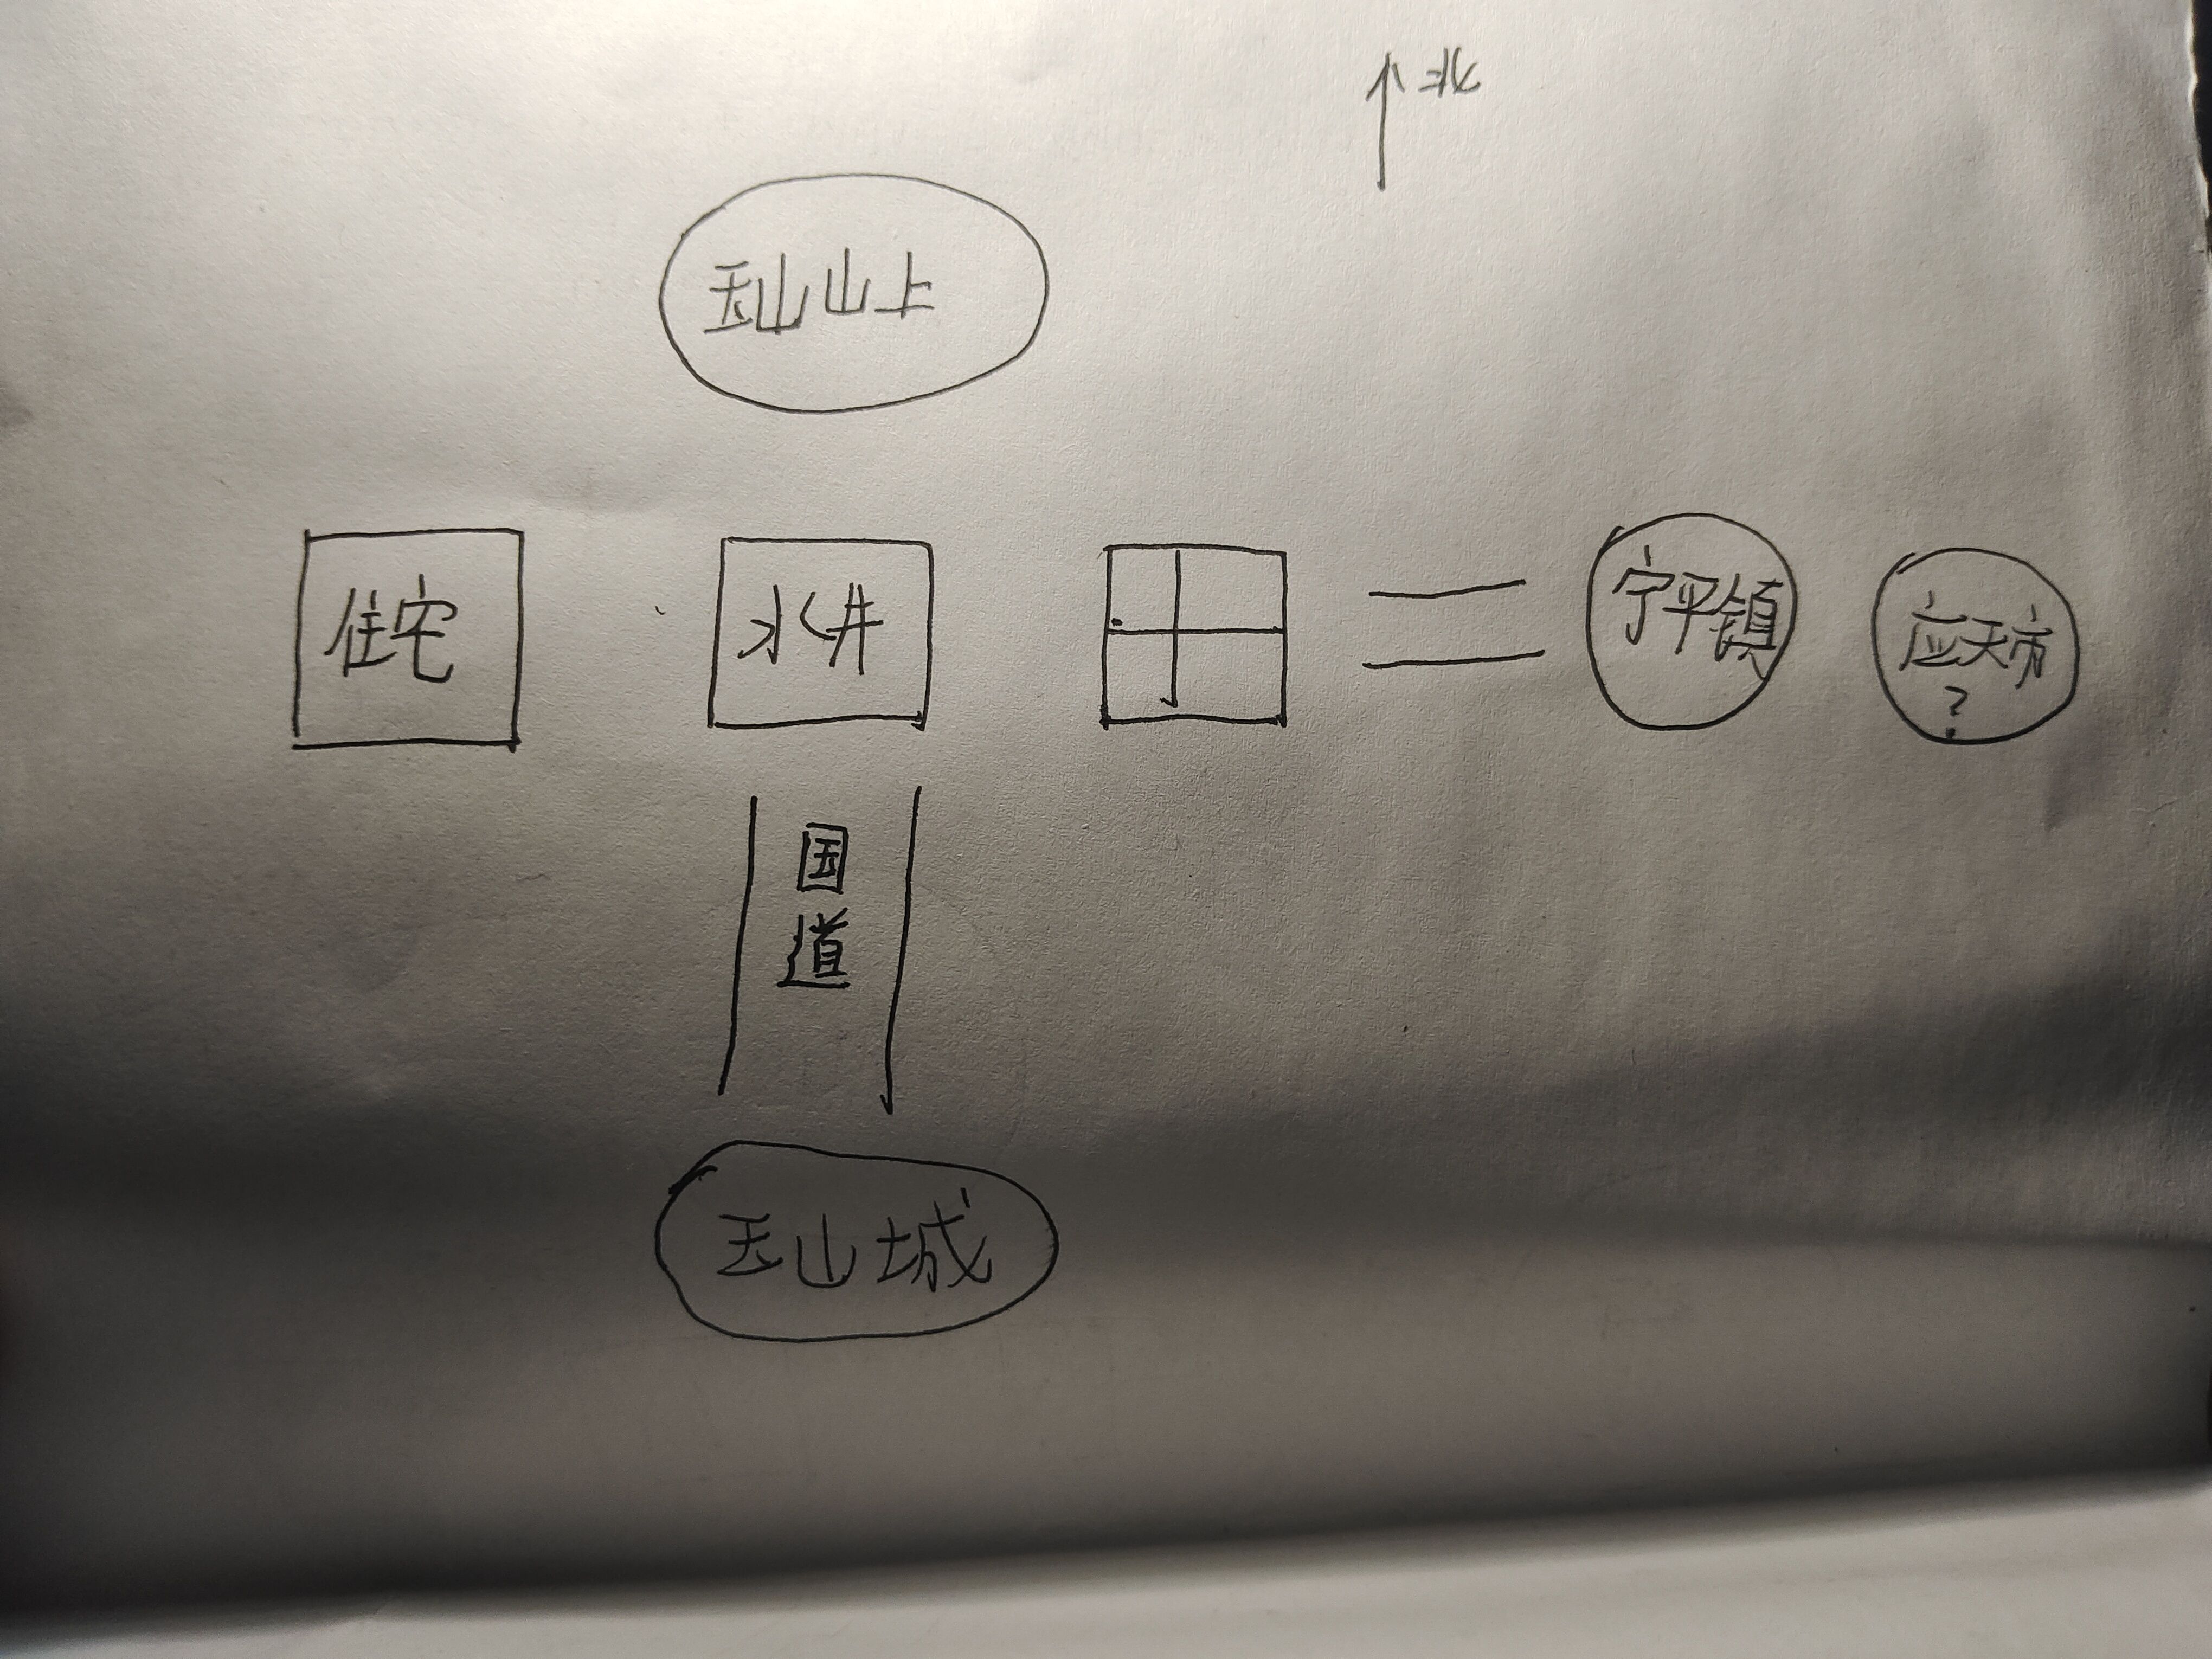 北
玉山山上
住宅
水井
田
宁平镇
应天市
?
国
道
玉山城